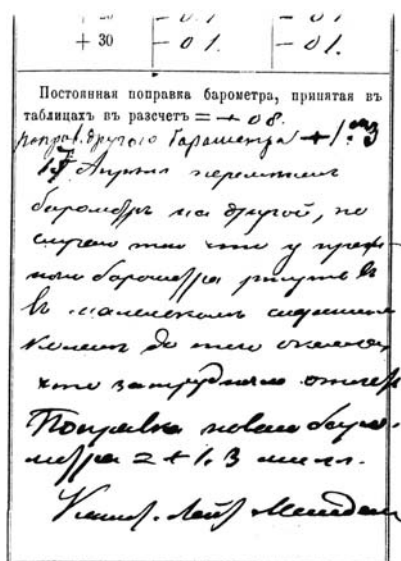 + 20 — 0 1. — 0 1.
+ 30 — 0 1. — 0 1.
Постоянная поправка барометра, принятая въ
таблицахъ въ разсчетъ = + 0 8.
поправ. другого барометра + 1.3
17 Апрѣля перемѣненъ
барометръ на другой, по
случаю того что у
барометра ртуть въ
въ маленькомъ
коленѣ до того
что затрудняло
Поправка новаго баро-
метра = + 1.3 милл.
Лейт